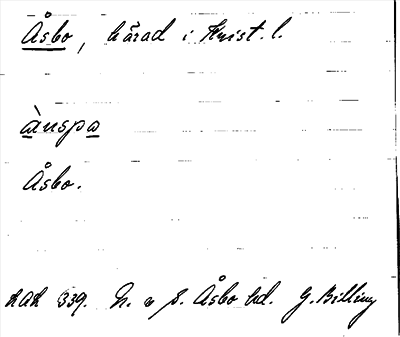 Åsbo, härad i Krist. l.
ànspa
Åsbo.
RAR 339. N. o S. Åsbo hd. G. Billing